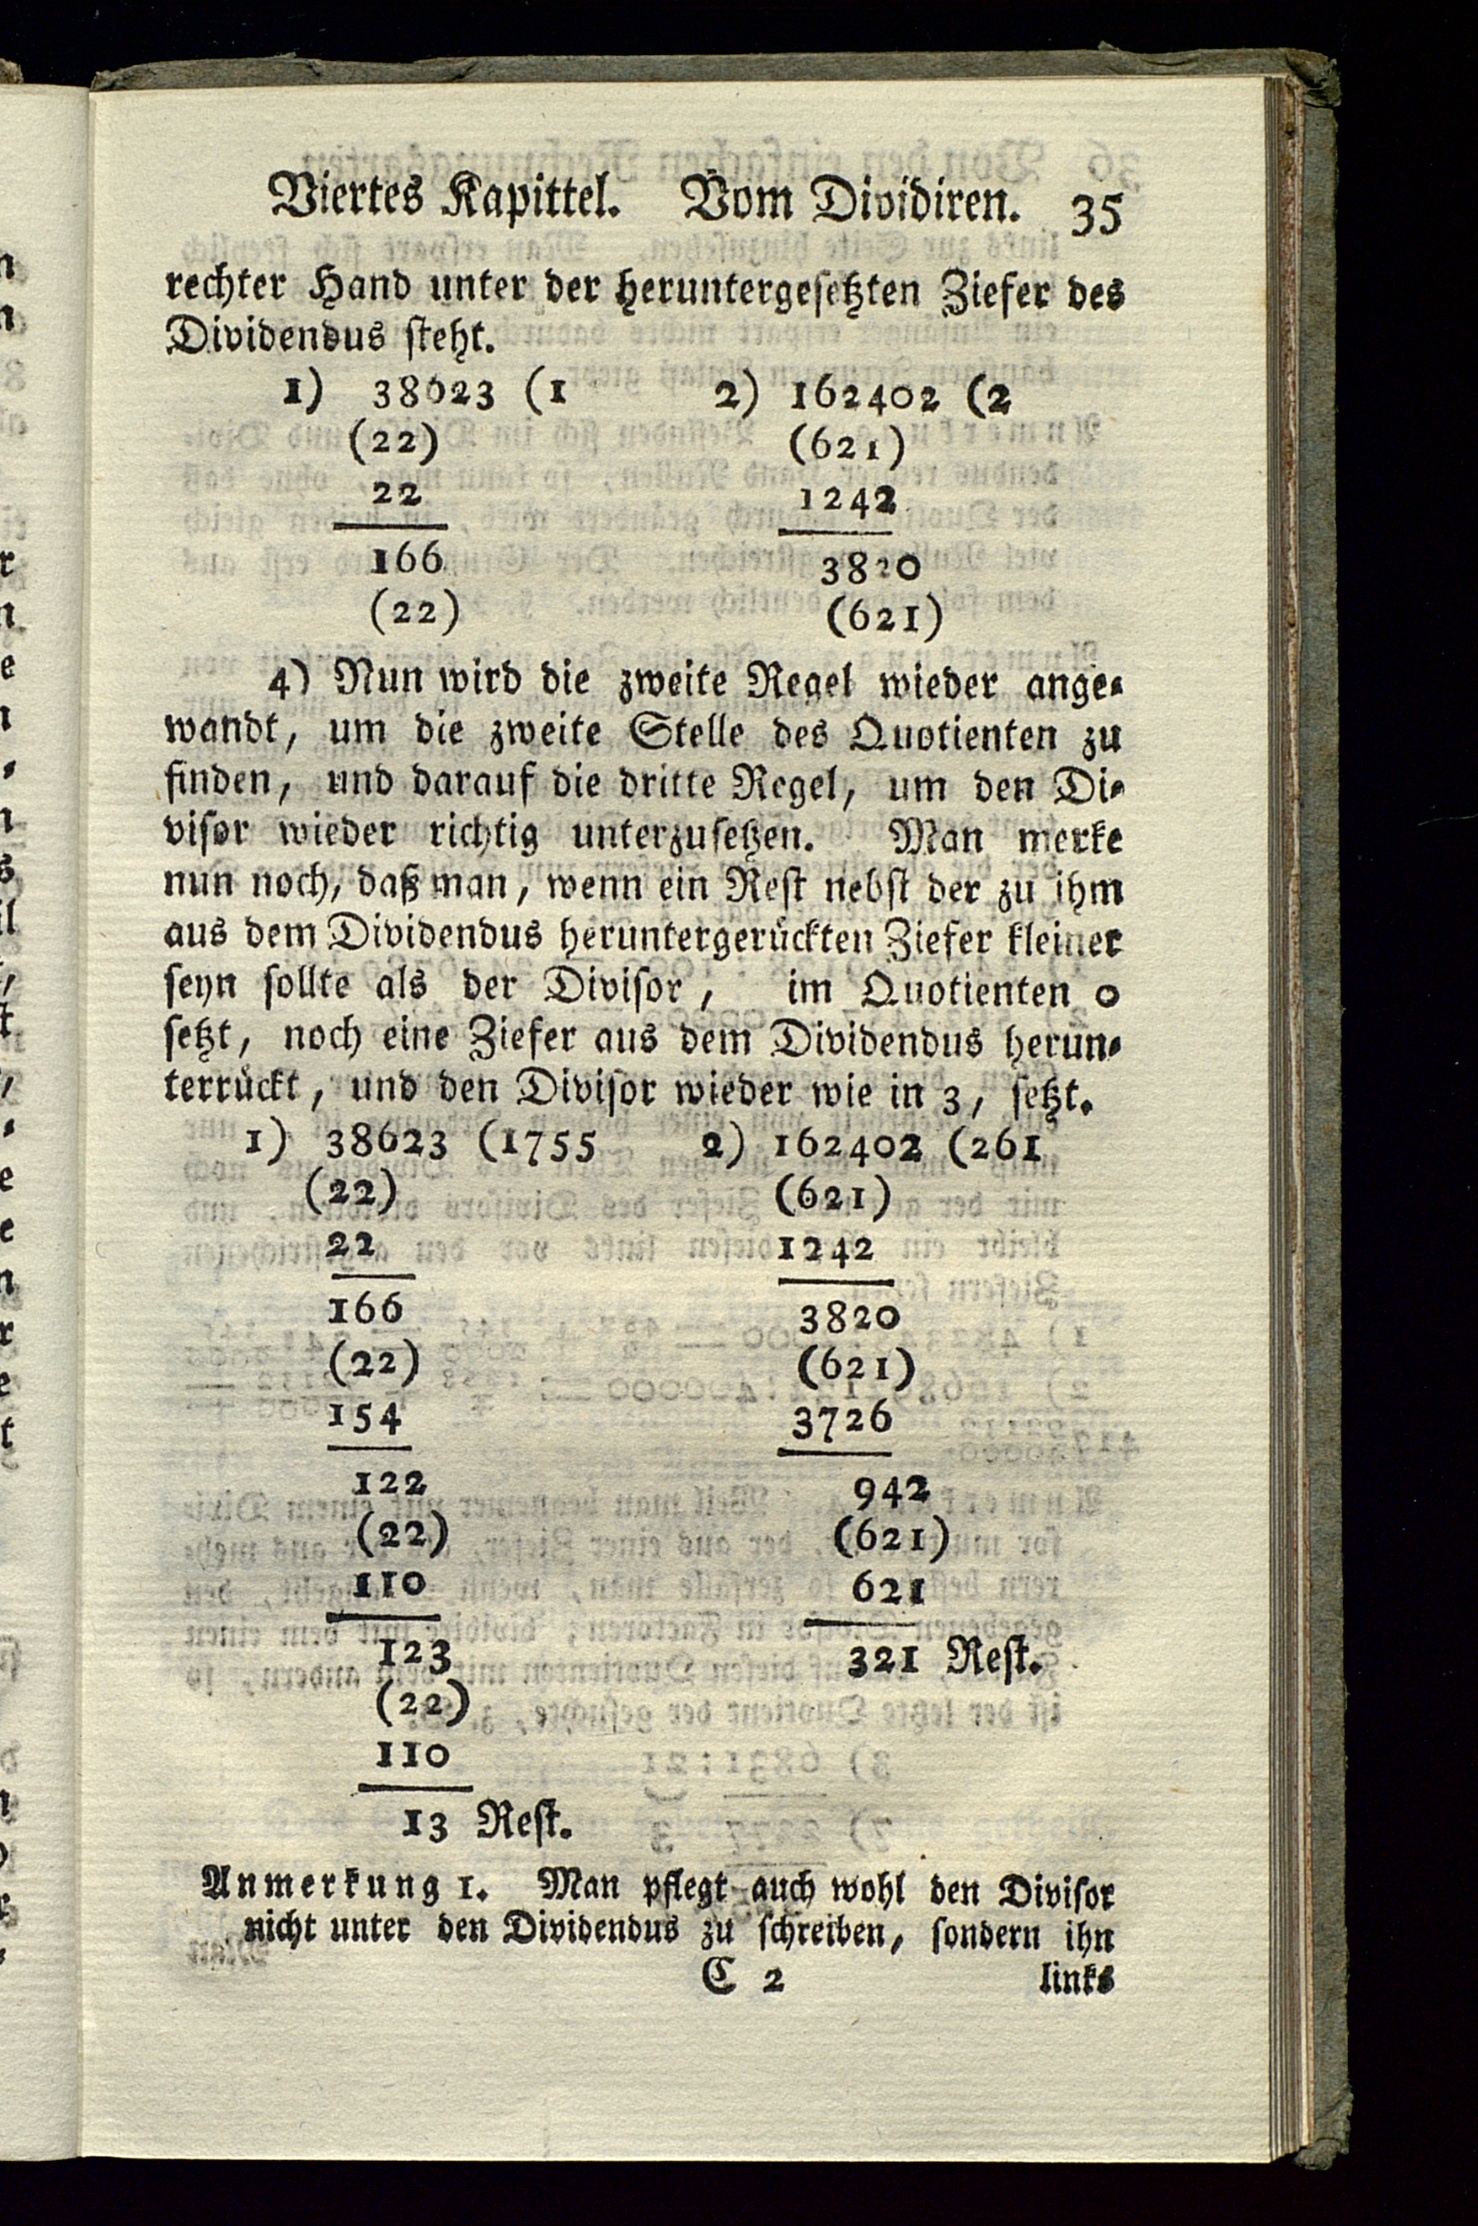 Viertes Kapittel. Vom Dividiren. 35
rechter Hand unter der heruntergesetzten Ziefer des
Dividendus steht.
1) 38623 (1
(22)
22
166
(22)
2) 162402 (2
(621)
1242
3820
(621)
4) Nun wird die zweite Regel wieder ange-
wandt, um die zweite Stelle des Quotienten zu
finden, und darauf die dritte Regel, um den Di-
visor wieder richtig unterzusetzen. Man merke
nun noch, daß man, wenn ein Rest nebst der zu ihm
aus dem Dividendus heruntergerückten Ziefer kleiner
seyn sollte als der Divisor, im Quotienten 0
setzt, noch eine Ziefer aus dem Dividendus herun-
terrückt, und den Divisor wieder wie in 3, setzt.
1) 38623 (1755
(22)
22
166
(22)
154
122
(22)
110
123
(22)
110
13 Rest.
2) 162402 (261
(621)
1242
3820
(621)
3726
942
(621)
621
321 Rest.
Anmerkung 1. Man pflegt auch wohl den Divisor
nicht unter den Dividendus zu schreiben, sondern ihn
C 2 links